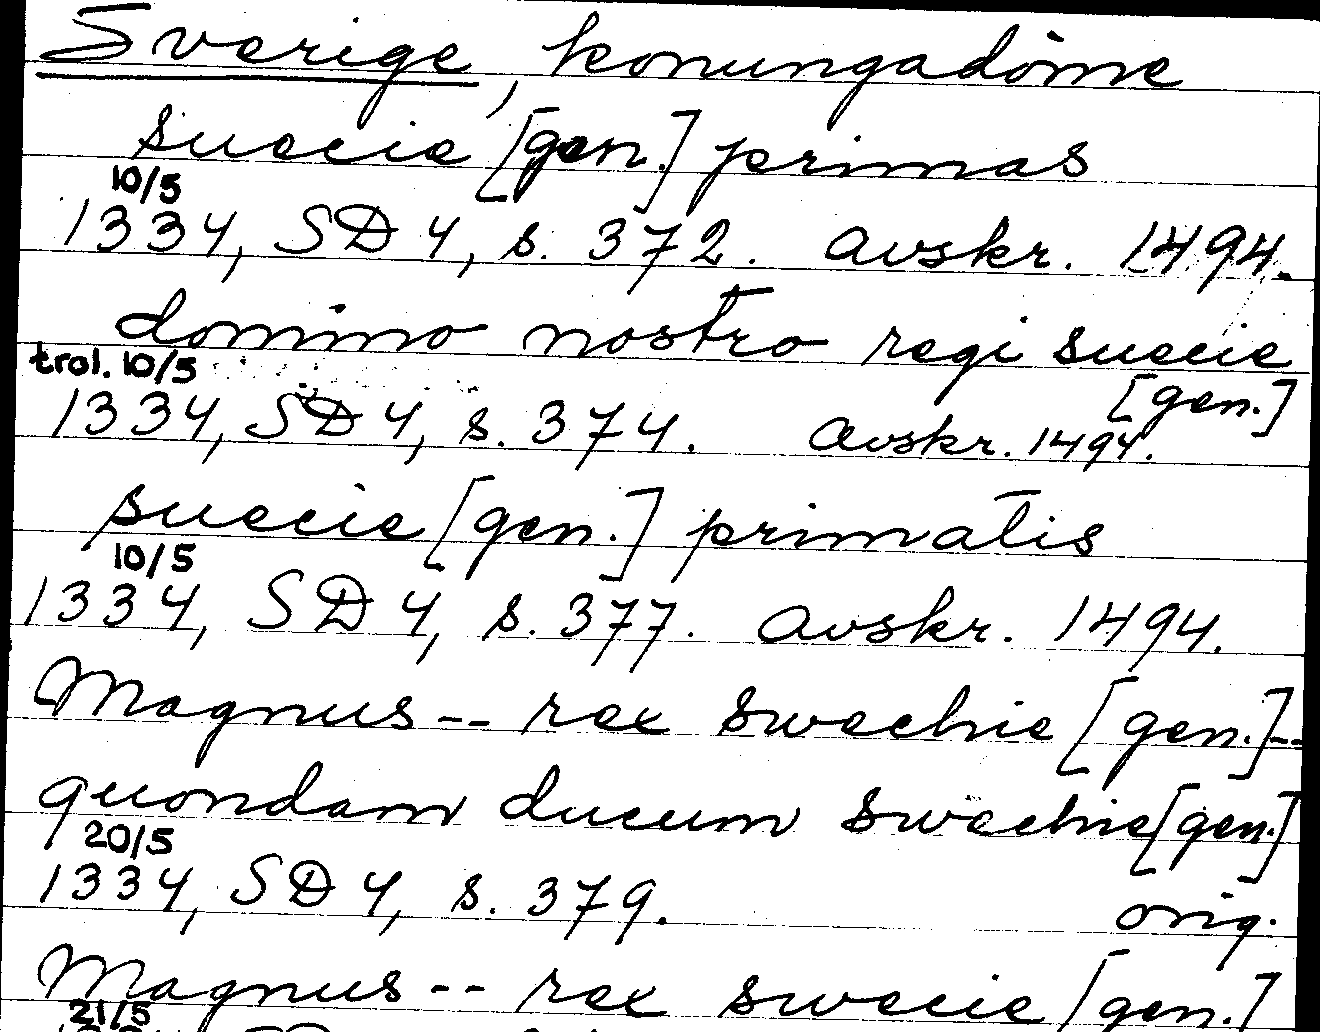 Sverige, konungadöme
suecie [gen.] primas
10/5
1334, SD 4, s. 372. avskr. 1494.
domino nostro regi suecie
trol. 10/5 [gen.]
1334, SD 4, s. 374. avskr. 1494.
suecie [gen.] primatis
10/5
1334, SD 4, s. 377. avskr. 1494.
Magnus -- rex swechie [gen.] --
quondam ducum swechie [gen.]
20/5
1334, SD 4, s. 379. orig.
Magnus -- rex swecie [gen.]
21/5